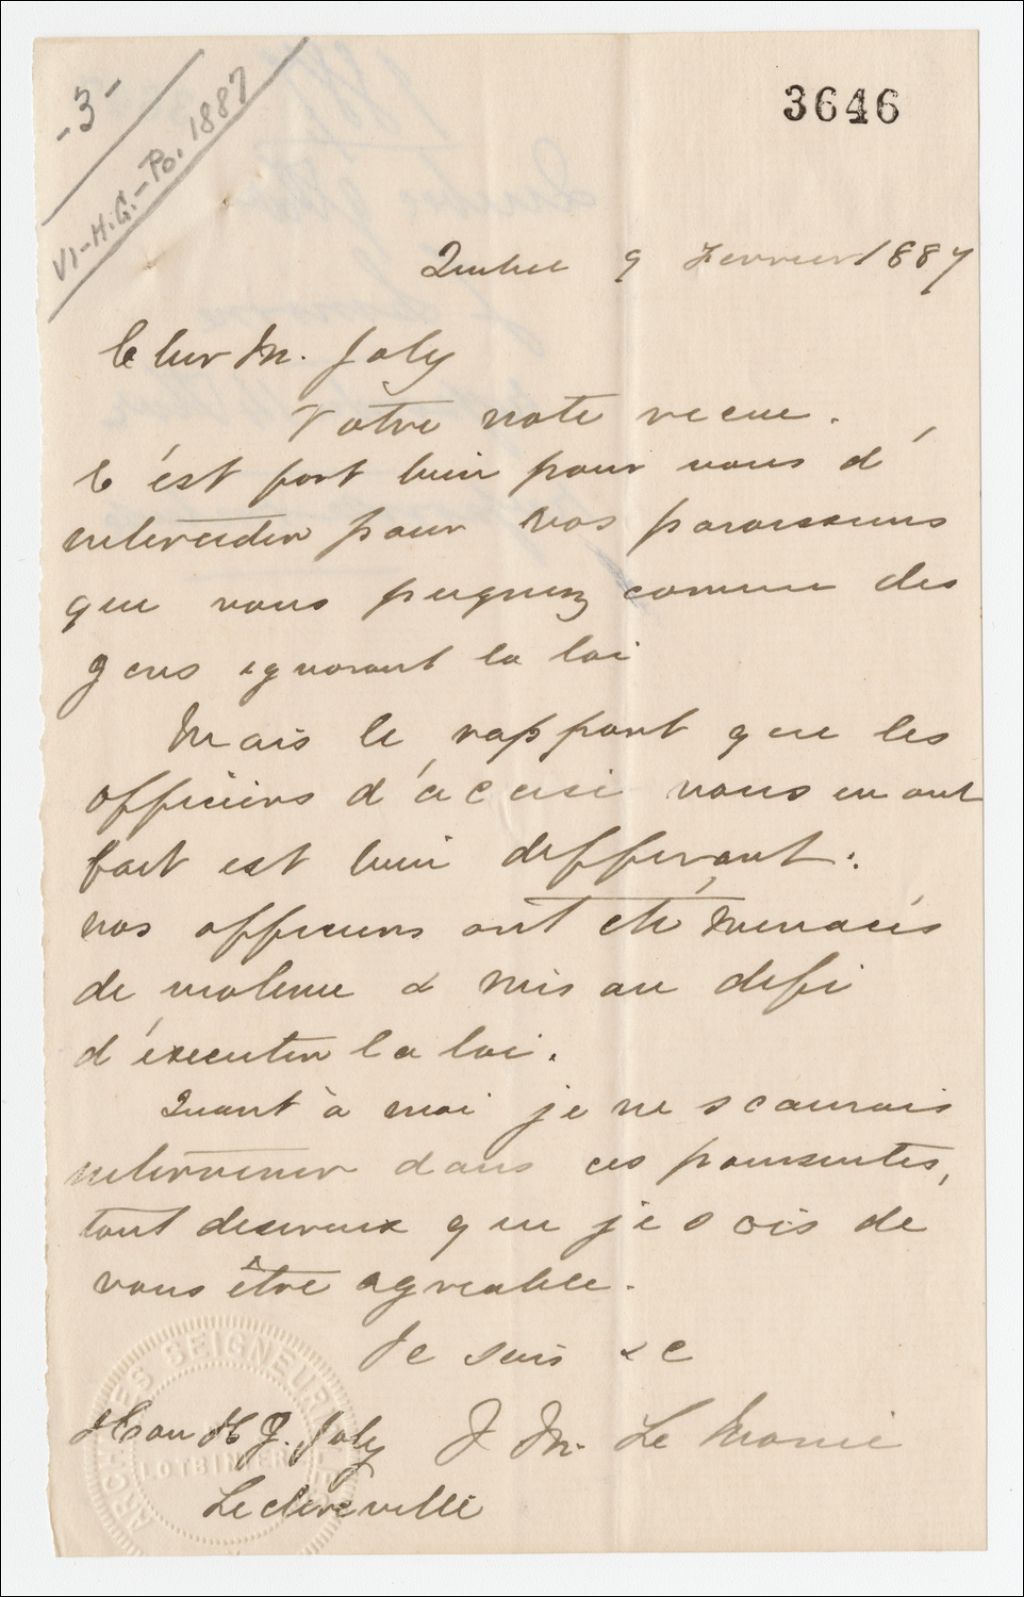 -3-
VI-H.G.-Po. 1887
3646
Quebec 9 Fevrier 1887
Cher M. Joly
Votre note recue.
C'est fort bien pour vous d'
interceder pour vos paroissiens
que vous peignez comme des
gens ignorant la loi
Mais le rapport que les
officiers d'accise nous en ont
fait est bien differant:
nos officiers ont été menacés
de violence & mis au defi
d'executer la loi.
Quant à moi je ne scaurais
intervenir dans ces poursuites,
tout desireux que je sois de
vous être agreable.
Je suis &c
J M. Le Moine
Hon H G. Joly
Leclercville
ARCHIVES SEIGNEUR
LOTBINIERE